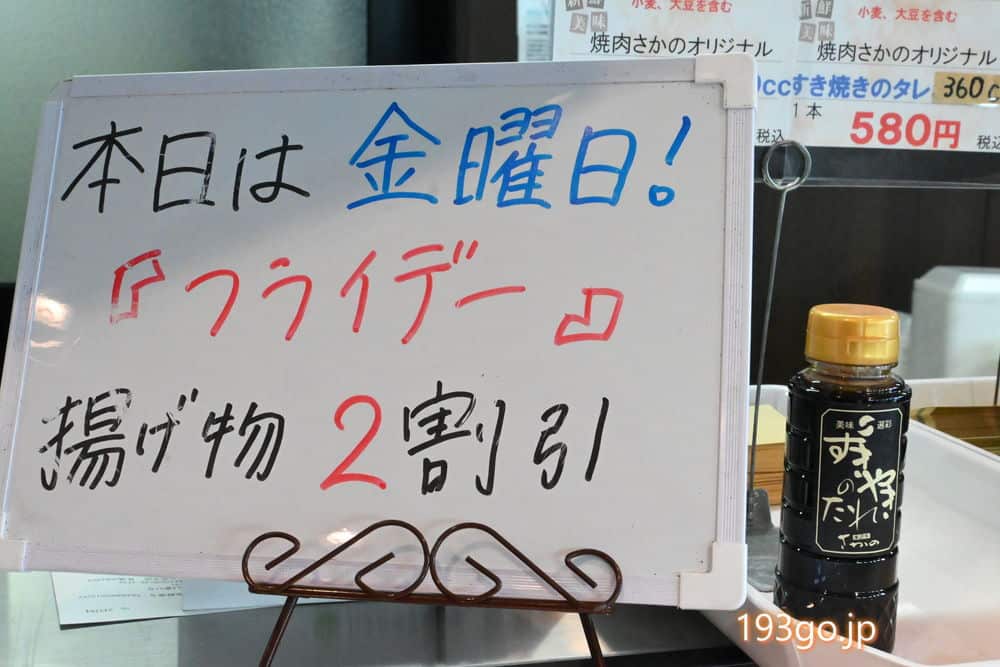 本日は 金曜日!
『フライデー』
揚げ物 2割引
小麦、大豆を含む
焼肉さかのオリジナル
税込
小麦、大豆を含む
新鮮
美味
焼肉さかのオリジナル
すき焼きのタレ 360c
1本 580円 税込
美味 選彩
すき焼き
のたれ
さかの
193go.jp